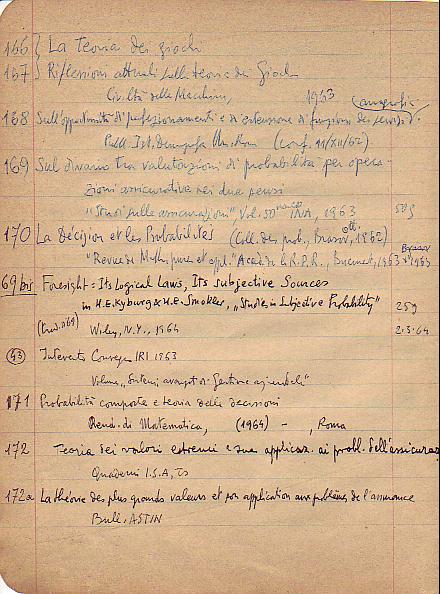 166 } La Teoria dei giochi
167 } Riflessioni attuali sulla teoria dei Giochi
Civiltà delle Macchine, 1963
168 Sull'opportunità di perfezionamenti e di estensione di funzioni dei servizi
Pubbl. Ist. Demografia Un. Roma (conf. 11/XII/62)
169 Sul divario tra valutazioni di probabilità per opera-
zioni assicurative nei due sensi
"Studi sulle assicurazioni" Vol. 50 INA, 1963 50 g
170 La Décision et les Probabilités (Coll. des prob., Brasov, ott. 1962)
"Revue de Math. pures et appl." Acad. de la R.P.R., Bucarest, 1963
69 bis Foresight: Its Logical Laws, Its Subjective Sources
in H.E. Kyburg & H.E. Smokler, "Studies in Subjective Probability" 25 g
(trad. di 69) Wiley, N.Y., 1964 2.3.64
43 Intervento Convegno IRI 1963
Volume "Sistemi avanzati di Gestione aziendale"
171 Probabilità composte e teoria delle decisioni
Rend. di Matematica, (1964) - , Roma
172 Teoria dei valori estremi e sua applicaz. ai probl. dell'assicuraz
Quaderni I.S.A, Ts
172a La théorie des plus grands valeurs et son application aux problèmes de l'assurance
Bull. ASTIN